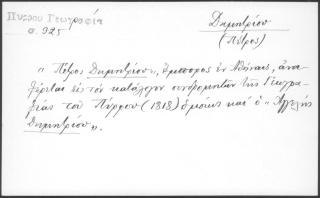 Πύρρου Γεωγραφία
σ. 325
Δημητρίου
(Πέτρος)
"Πέτρος Δημητρίου", ἔμπορος ἐν Ἀθήναις, ἀνα-
φέρεται εἰς τὸν κατάλογον συνδρομητῶν τῆς Γεωγρα-
φίας τοῦ Πύρρου (1818) ὁμοίως καὶ ὁ "Ἀγγελῆς
Δημητρίου".